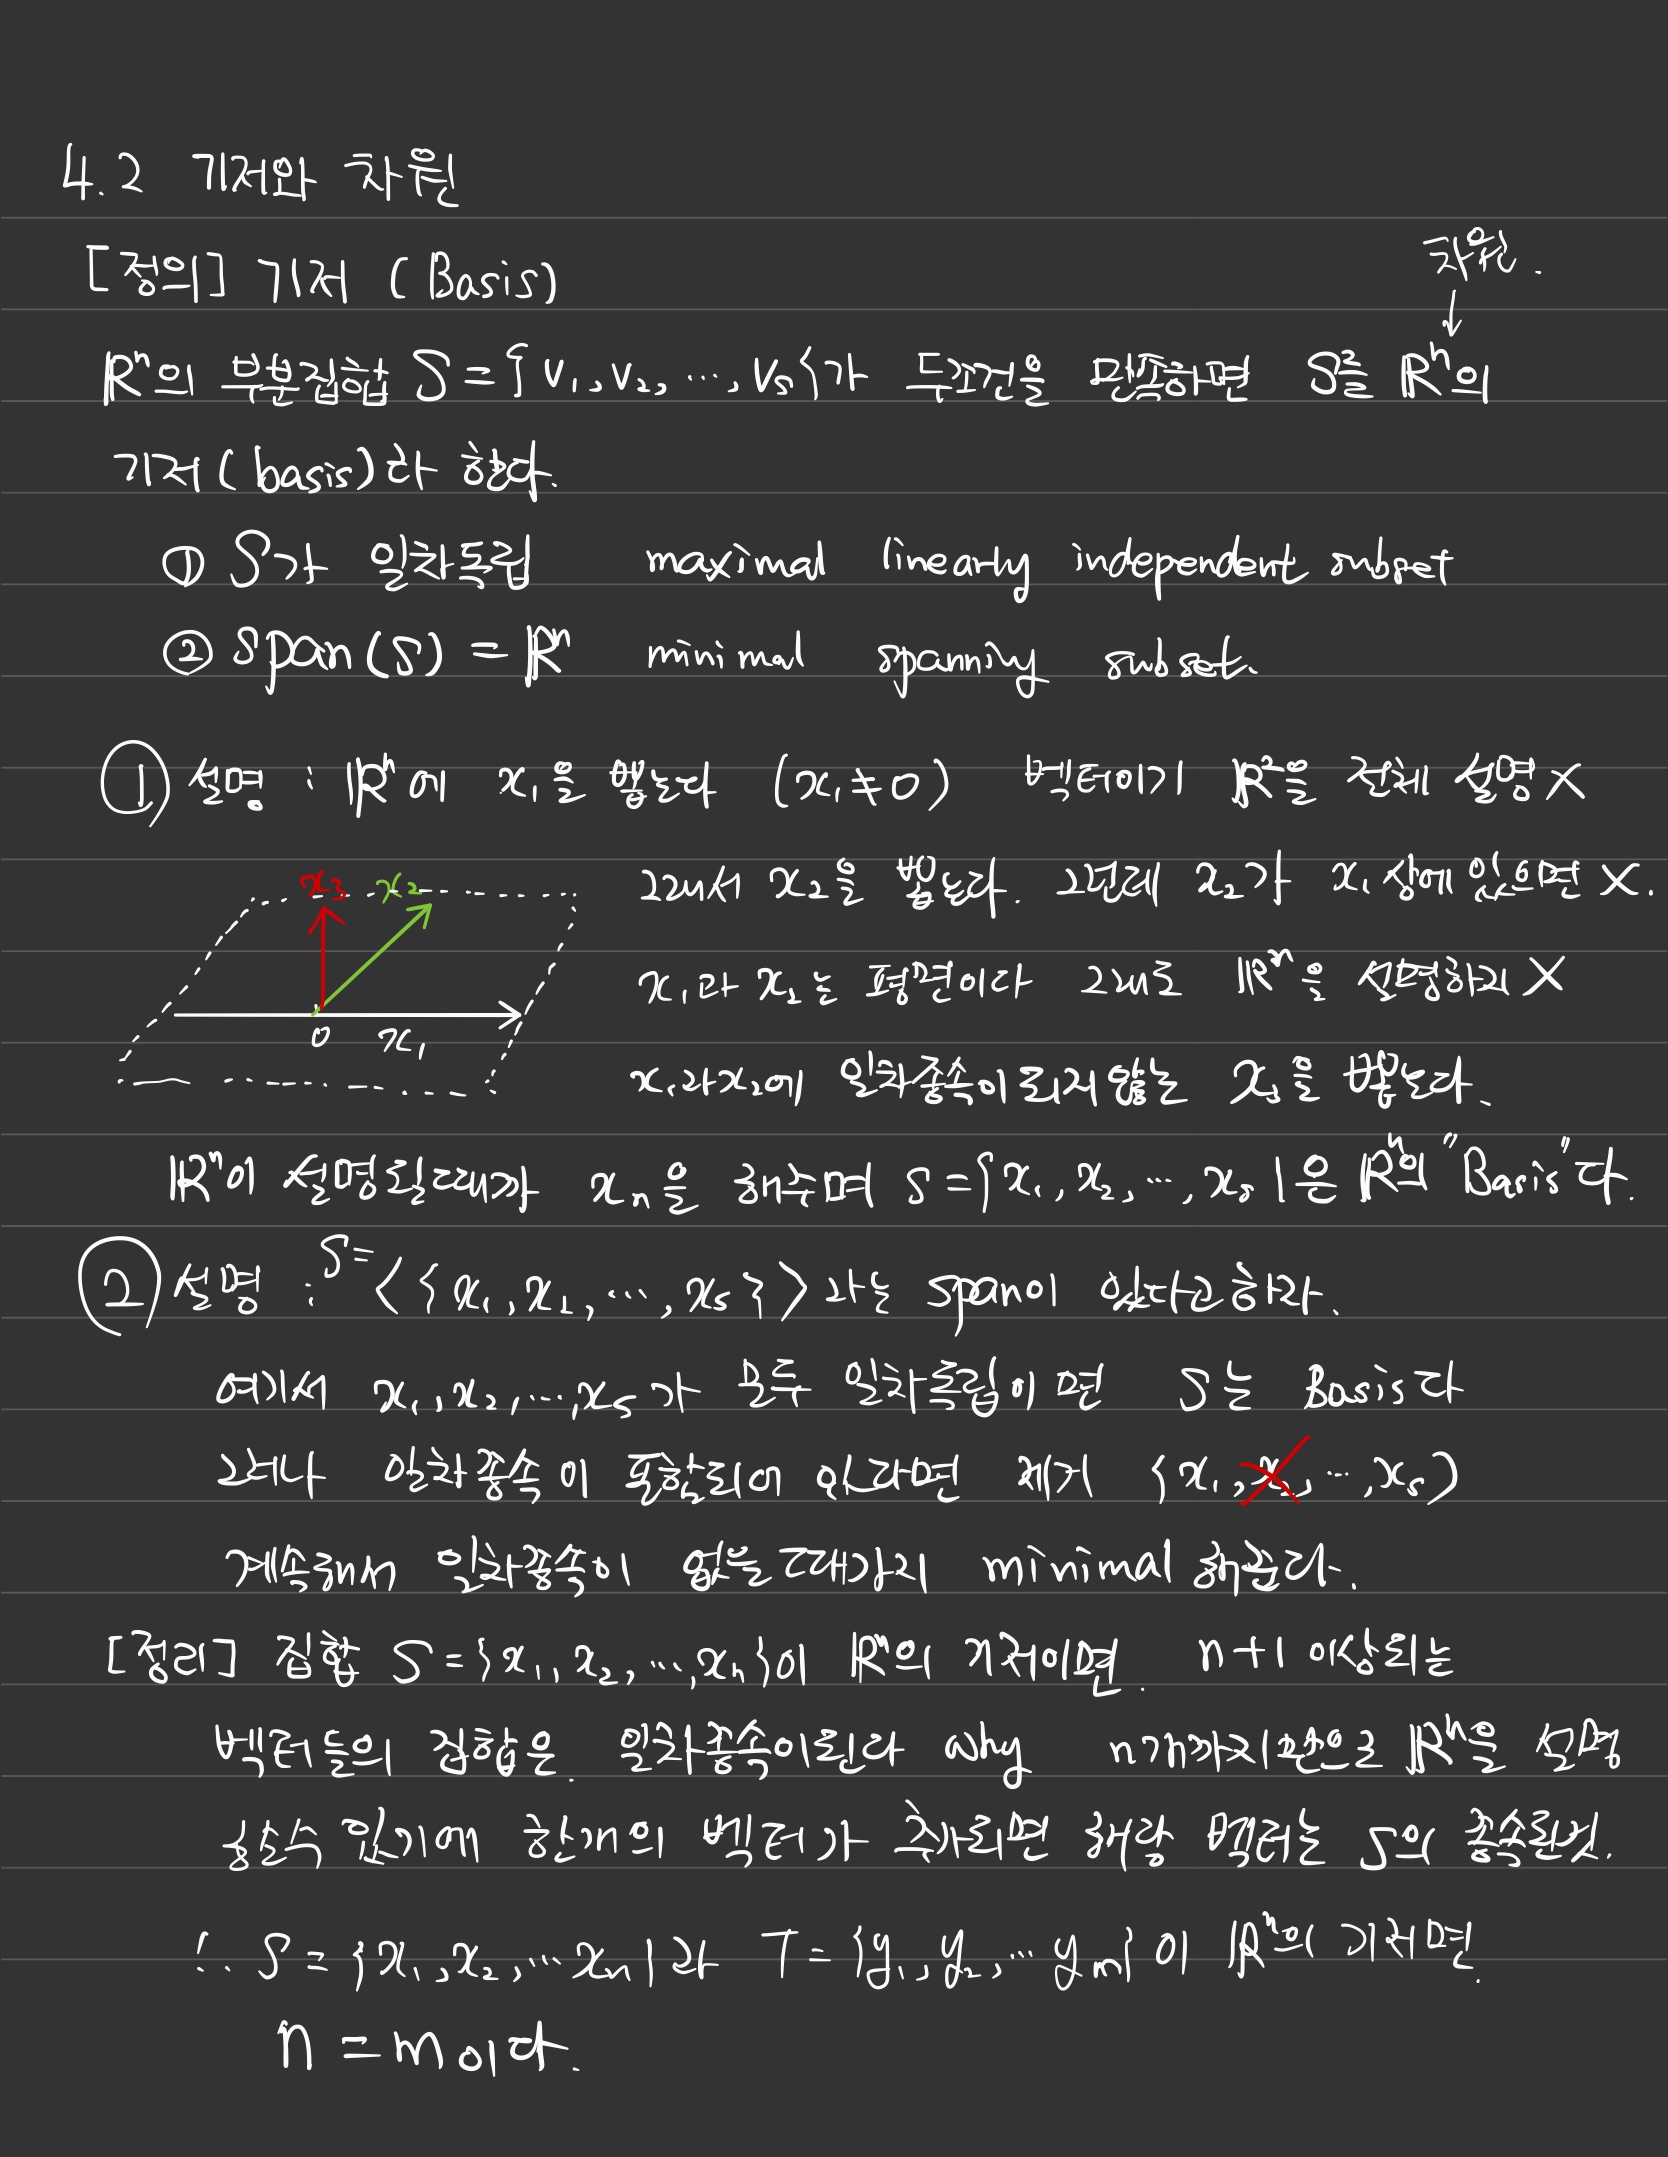 4.2 기저와 차원
[정의] 기저 (Basis)
차원.
↓
ℝⁿ의 부분집합 S={v₁,v₂,…,vₛ}가 두조건을 만족하면 S를 ℝⁿ의
기저(basis)라 한다.
① S가 일차독립 maximal linearly independent subset
② span(S) = ℝⁿ minimal spanning subset.
① 설명 : ℝⁿ에 x₁을 뽑는다 (x₁≠0) 벡터이기 ℝ²을 전체 설명 X
그래서 x₂을 뽑는다. 그런데 x₂가 x₁상에 있으면 X.
x₁과 x₂는 평면이다 그래도 ℝⁿ을 설명하기 X
x₁과x₂에 일차종속이 되지않는 x₃을 뽑는다.
x₃ x₂
0 x₁
ℝⁿ이 설명될때까 xₙ을 해주며 S={x₁,x₂,…,xₛ}은 ℝⁿ의 "Basis"다.
② 설명 : S=<{x₁,x₂,…,xₛ}>라는 span이 있다고하라.
여기서 x₁,x₂,…,xₛ가 모두 일차독립이면 S는 Basis다
그러나 일차종속이 포함되어 있다면 제거 {x₁,x₂,…,xₛ)
계속해서 일차종속이 없을때까지 minimal 해준다.
[정리] 집합 S={x₁,x₂,…,xₙ}이 ℝⁿ의 기저이면. n+1 이상되는
벡터들의 집합은. 일차종속이된다 why n개까지만으로 ℝⁿ을 설명
할수 있기에 한개의 벡터가 추가되면 해당 벡터는 S의 종속된것.
∴ S={x₁,x₂,…xₙ}과 T={y₁,y₂,…yₘ}이 ℝⁿ의 기저면.
n=m이다.